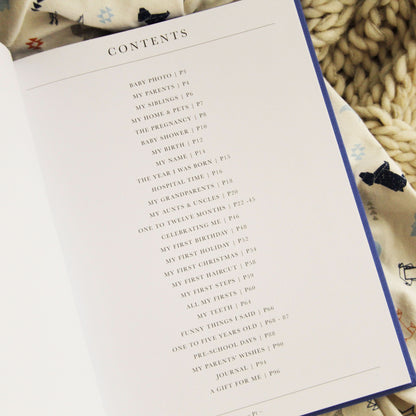 CONTENTS
BABY PHOTO | P3
MY PARENTS | P4
MY SIBLINGS | P6
MY HOME & PETS | P7
THE PREGNANCY | P8
BABY SHOWER | P10
MY BIRTH | P12
MY NAME | P14
THE YEAR I WAS BORN | P15
HOSPITAL TIME | P16
MY GRANDPARENTS | P18
MY AUNTS & UNCLES | P20
ONE TO TWELVE MONTHS | P22 -45
CELEBRATING ME | P46
MY FIRST BIRTHDAY | P48
MY FIRST HOLIDAY | P52
MY FIRST CHRISTMAS | P54
MY FIRST HAIRCUT | P58
MY FIRST STEPS | P59
ALL MY FIRSTS | P60
MY TEETH | P64
FUNNY THINGS I SAID | P66
ONE TO FIVE YEARS OLD | P68 - 87
PRE-SCHOOL DAYS | P88
MY PARENTS' WISHES | P90
JOURNAL | P94
A GIFT FOR ME | P96
- P1 -